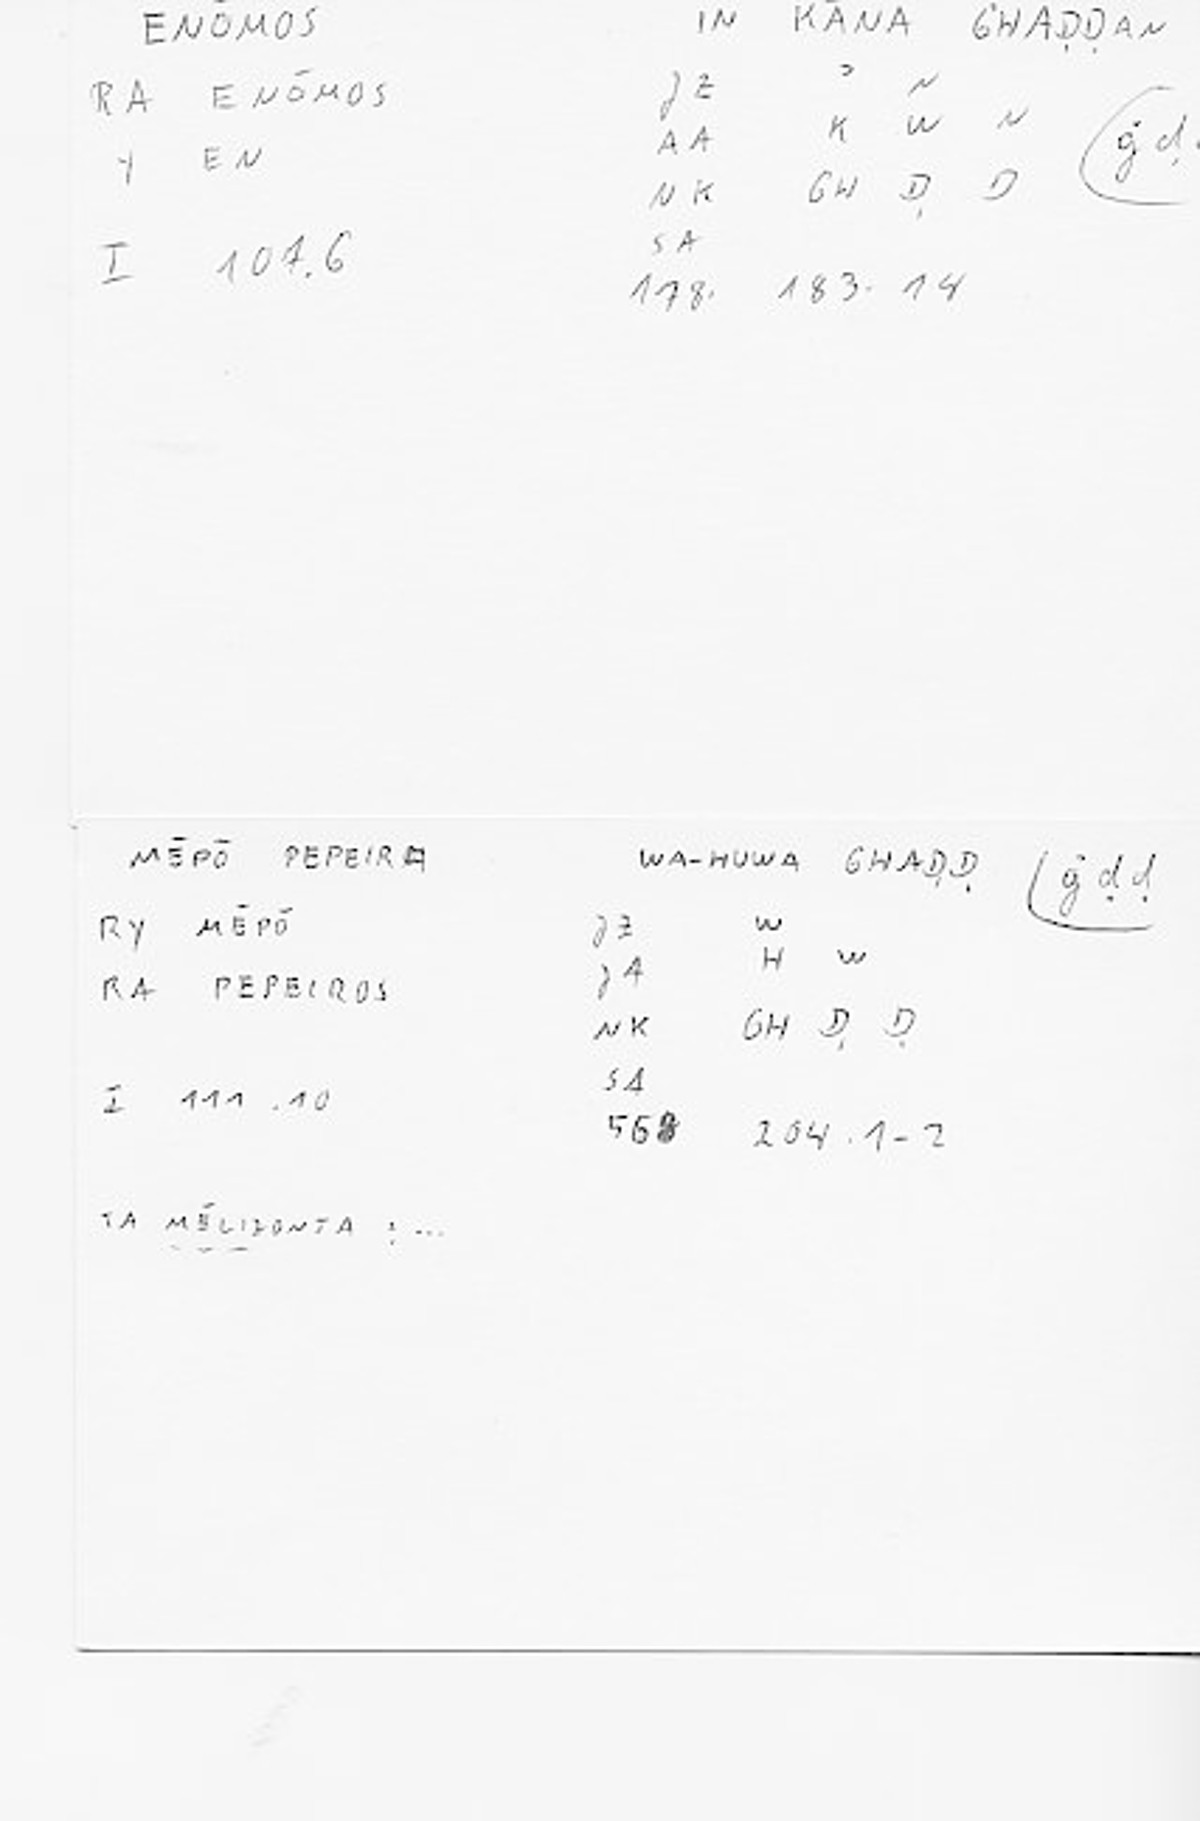 ENŌMOS IN KĀNA GHAḌḌAN
RA ENŌMOS JZ ʾ N
Y EN AA K W N (ġḍ
NK GH Ḍ D
SA
I 107.6 178. 183. 14
MĒPŌ PEPEIRA WA-HUWA GHAḌḌ (ġḍḍ
RY MĒPŌ JZ W
RA PEPEIROS JA H W
NK GH Ḍ Ḍ
I 111.10 SA
568 204.1-2
TA MĒLIZONTA : ...